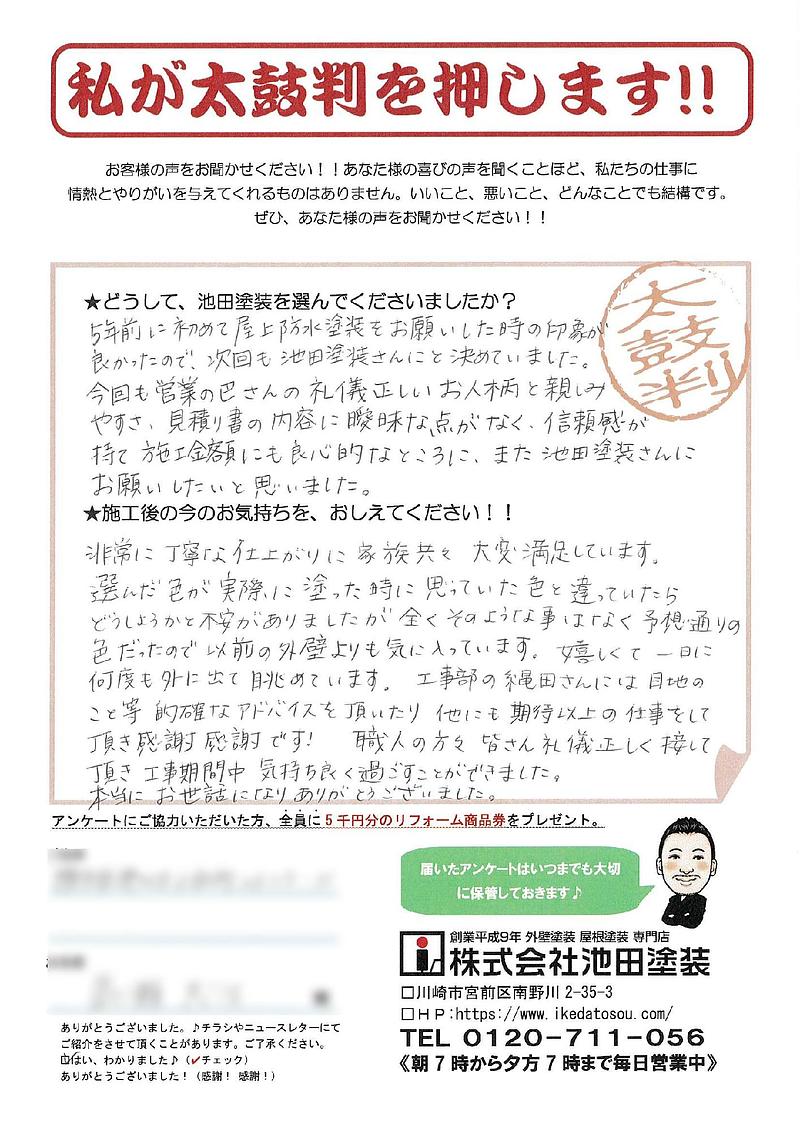 私が太鼓判を押します!!
お客様の声をお聞かせください！！あなた様の喜びの声を聞くことほど、私たちの仕事に
情熱とやりがいを与えてくれるものはありません。いいこと、悪いこと、どんなことでも結構です。
ぜひ、あなた様の声をお聞かせください！！
太鼓判
★どうして、池田塗装を選んでくださいましたか？
5年前に初めて屋上防水塗装をお願いした時の印象が
良かったので、次回も池田塗装さんにと決めていました。
今回も営業の巴さんの礼儀正しいお人柄と親しみ
やすさ、見積り書の内容に曖昧な点がなく、信頼感が
持て施工金額にも良心的なところに、また池田塗装さんに
お願いしたいと思いました。
★施工後の今のお気持ちを、おしえてください！！
非常に丁寧な仕上がりに家族共々大変満足しています。
選んだ色が実際に塗った時に思っていた色と違っていたら
どうしようかと不安がありましたが全くそのような事はなく予想通りの
色だったので以前の外壁よりも気に入っています。嬉しくて一日に
何度も外に出て眺めています。工事部の縄田さんには目地の
こと等的確なアドバイスを頂いたり他にも期待以上の仕事をして
頂き感謝感謝です！職人の方々皆さん礼儀正しく接して
頂き工事期間中気持ち良く過ごすことができました。
本当にお世話になりありがとうございました。
アンケートにご協力いただいた方、全員に5千円分のリフォーム商品券をプレゼント。
届いたアンケートはいつまでも大切
に保管しておきます♪
創業平成9年 外壁塗装 屋根塗装 専門店
株式会社池田塗装
□川崎市宮前区南野川 2-35-3
□ＨＰ:https://www.ikedatosou.com/
TEL 0120-711-056
《朝7時から夕方7時まで毎日営業中》
ありがとうございました。♪チラシやニュースレターにて
ご紹介をさせて頂くことがあります。ご了承ください。
☑はい、わかりました♪（✔チェック）
ありがとうございました！（感謝！感謝！）